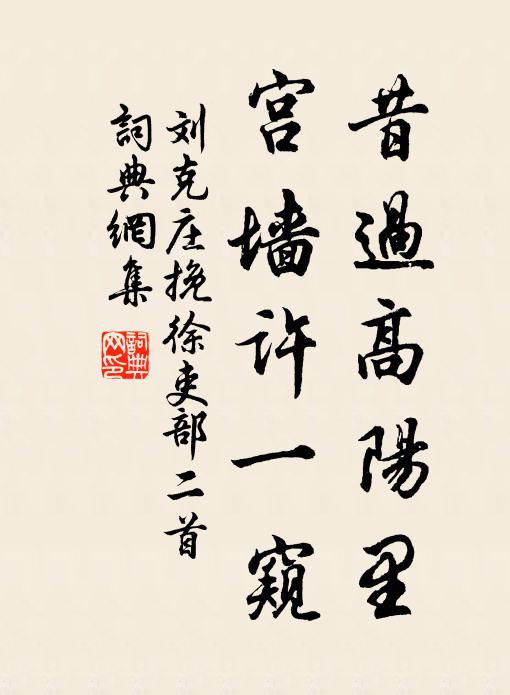 昔過高陽里
宫墙许一窺
刘克庄挽徐吏部二首
詞典網集
詞典网印